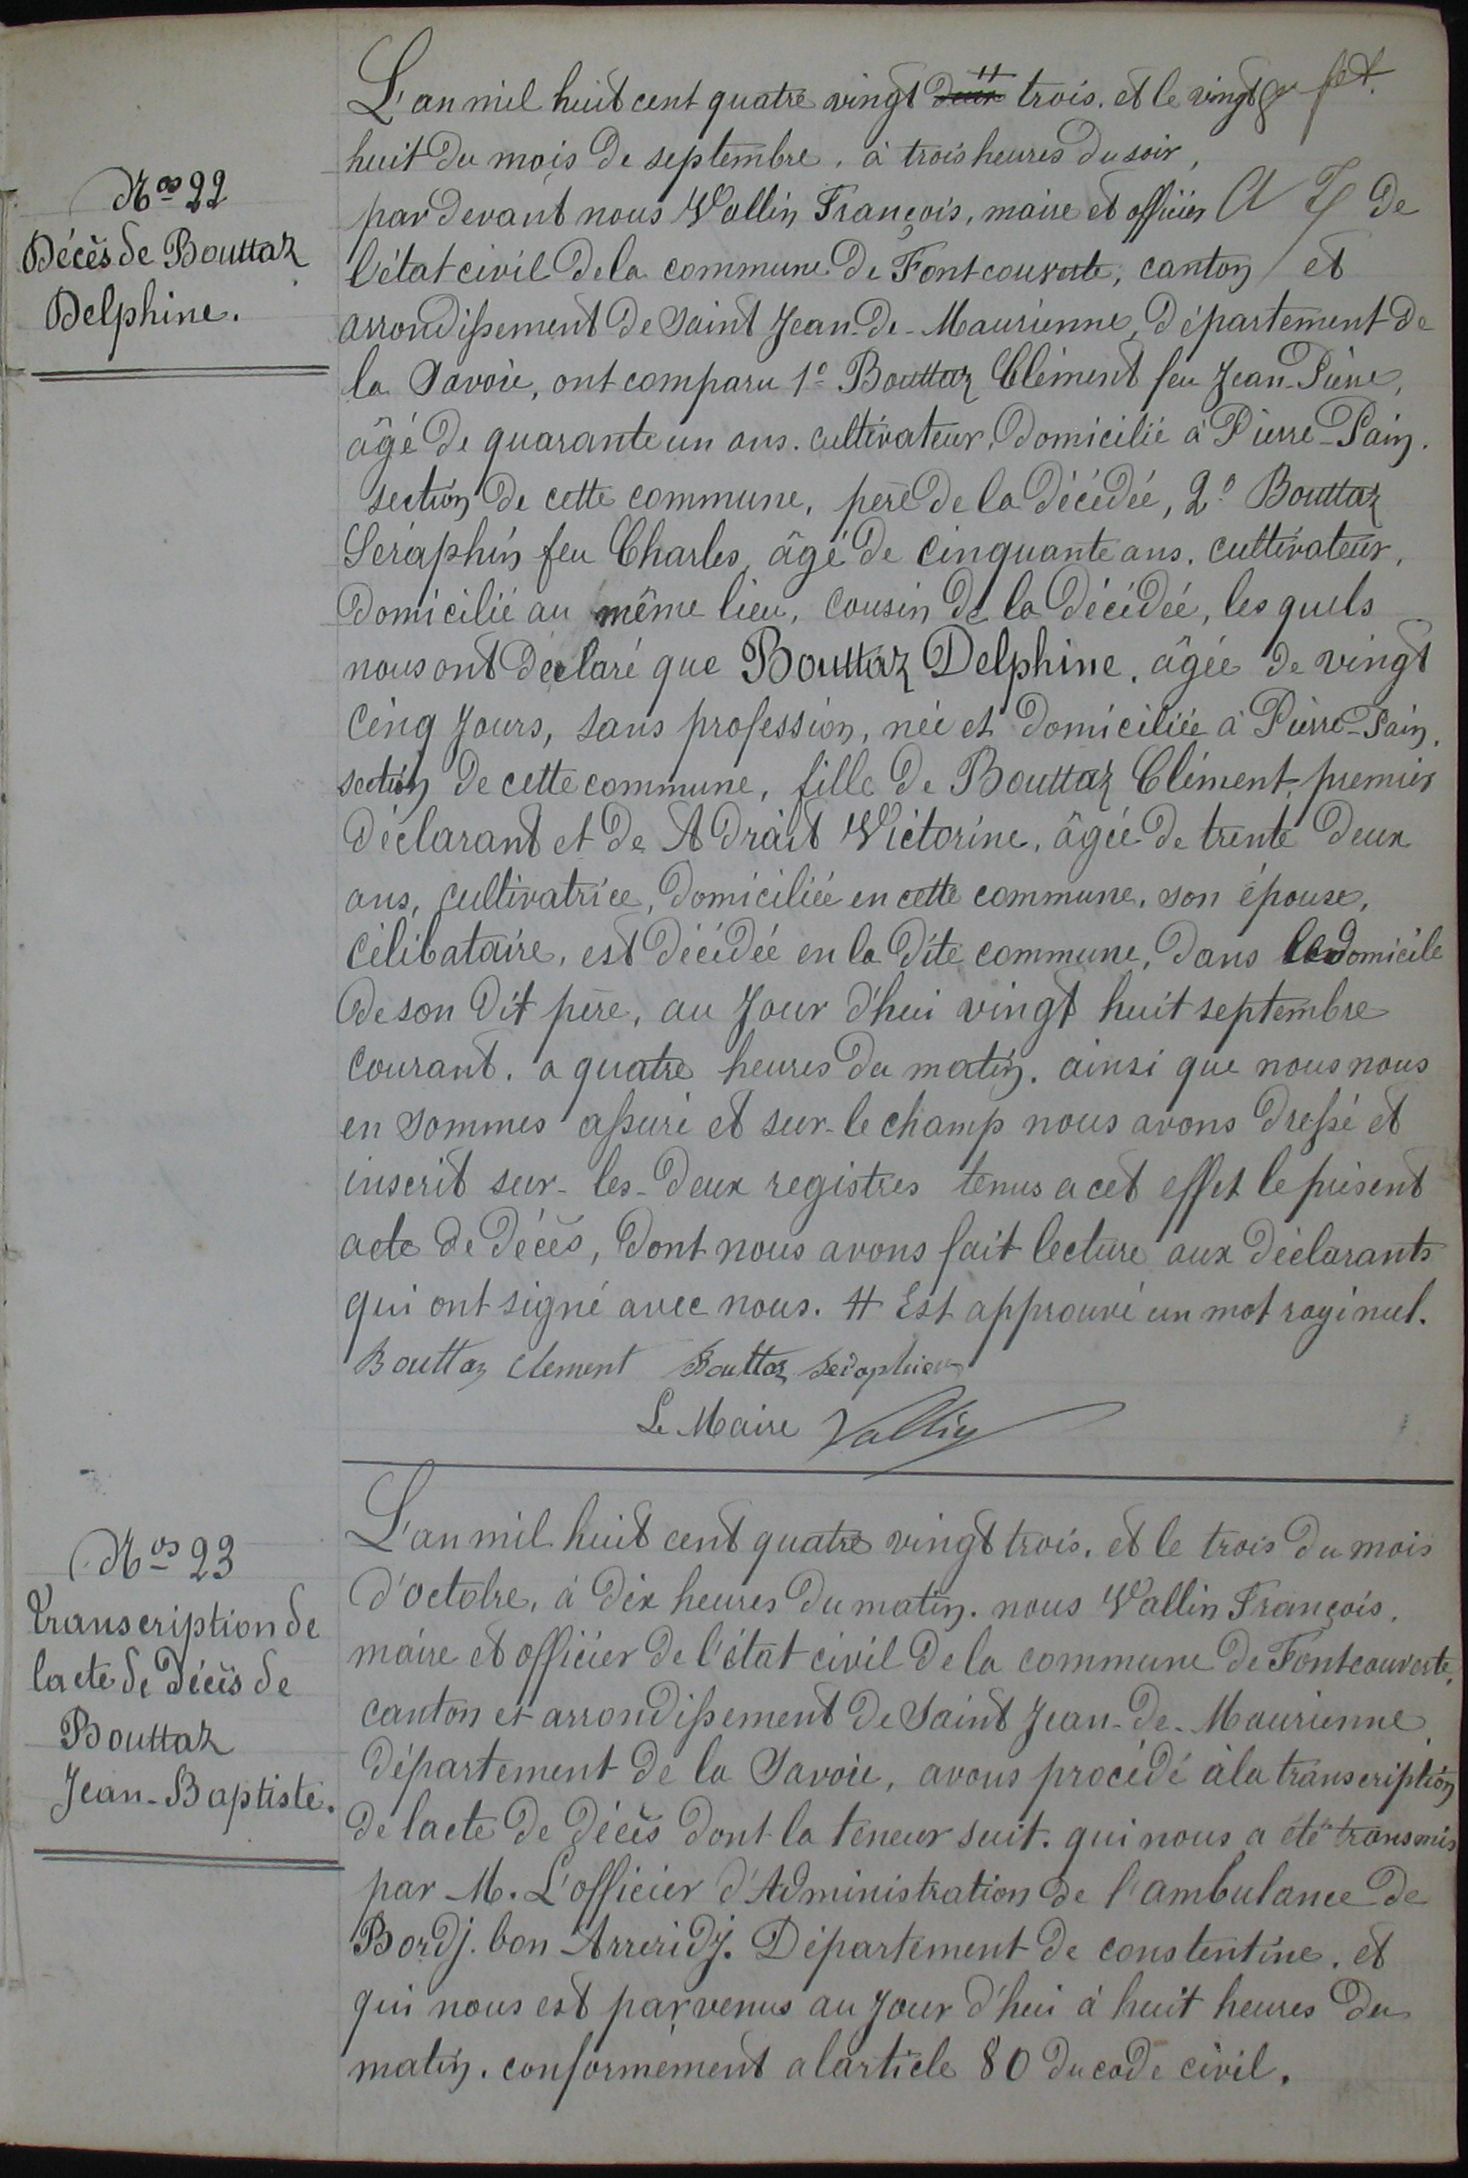 Nos 22
Décès de Bouttaz
Delphine.
L'an mil huit cent quatre vingt deux # trois. et le vingt
huit du mois de septembre. à trois heures du soir,
par devant nous Vallin François, maire et officier de
l'état civil de la commune de Fontcouverte, canton et
arrondissement de Saint Jean-de-Maurienne, département de
la Savoie, ont comparu 1o Bouttaz Clément feu Jean-Pierre,
âgé de quarante un ans. cultivateur, domicilié à Pierre-Pain.
section de cette commune, père de la décédée, 2o Bouttaz
Séraphin feu Charles, âgé de cinquante ans. cultivateur,
domicilié au même lieu, cousin de la décédée, les quels
nous ont déclaré que Bouttaz Delphine. âgée de vingt
cinq jours, sans profession, née et domiciliée à Pierre-Pain,
section de cette commune, fille de Bouttaz Clément, premier
déclarant et de Adrait Victorine, âgée de trente deux
ans, cultivatrice, domiciliée en cette commune, son épouse,
célibataire, est décédée en la dite commune, dans le domicile
de son dit père, au jour d'hui vingt huit septembre
courant. a quatre heures du matin. ainsi que nous nous
en sommes assuré et sur-le champ nous avons dressé et
inscrit sur-les-deux registres tenus a cet effet le présent
acte de décès, dont nous avons fait lecture aux déclarants
qui ont signé avec nous. # Est approuvé un mot rayé nul.
Bouttaz Clement Bouttaz Séraphin
Le Maire Vallin
Nos 23
Transcription de
lacte de décès de
Bouttaz
Jean-Baptiste.
L'an mil huit cent quatre vingt trois. et le trois du mois
d'octobre, à dix heures du matin. nous Vallin François.
maire et officier de l'état civil de la commune de Fontcouverte,
canton et arrondissement de Saint Jean-de-Maurienne,
département de la Savoie, avons procédé à la transcription
de lacte de décès dont la teneur suit. qui nous a été transmis
par M. L'officier d'Administration de l'ambulance de
Bordj. bon Arreridj. Département de constentine. et
qui nous est parvenus au jour d'hui à huit heures du
matin. conformément a larticle 80 du code civil.